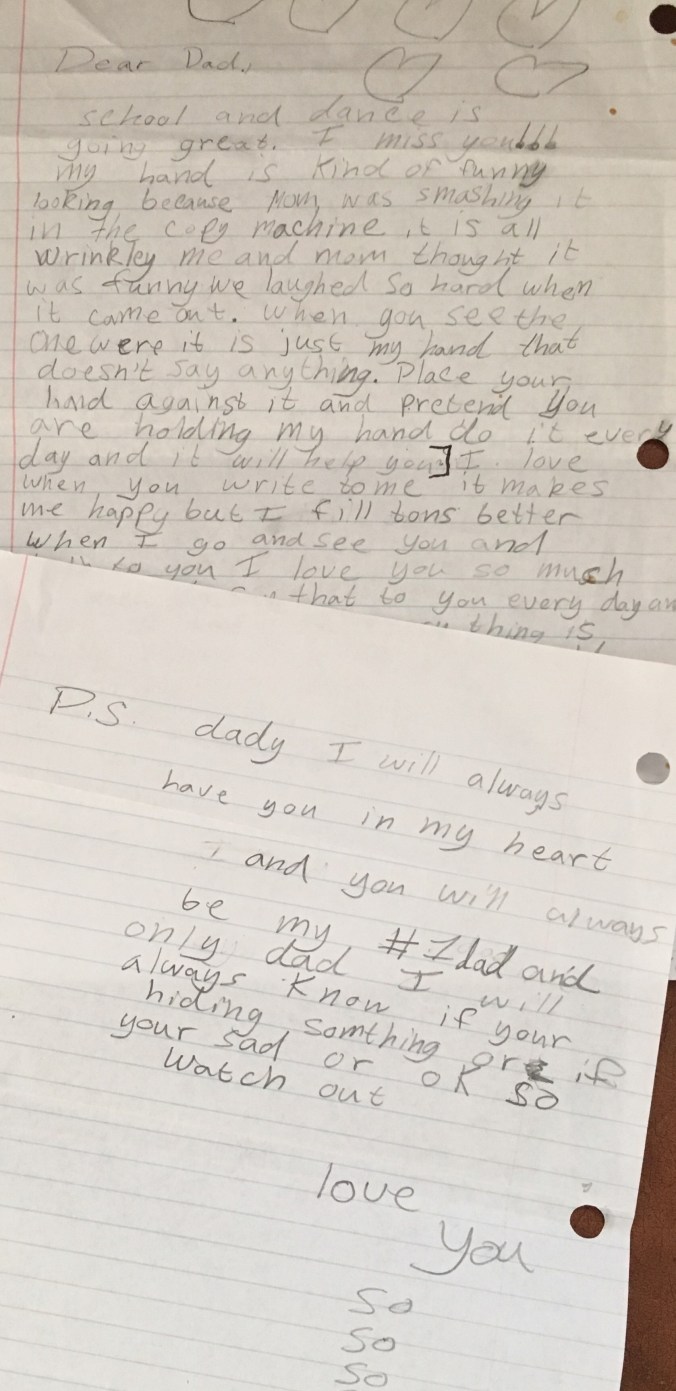 Dear Dad,
school and dance is
going great. I miss you
my hand is kind of funny
looking because Mom was smashing it
in the copy machine it is all
wrinkley me and mom thought it
was funny we laughed so hard when
it came out. When you see the
one were it is just my hand that
doesn't say anything. Place your
hand against it and pretend you
are holding my hand do it every
day and it will help you] I love
when you write to me it makes
me happy but I fill tons better
when I go and see you and
to you I love you so much
that to you every day an
thing is,
P.S. dady I will always
have you in my heart
and you will always
be my #1 dad and
only dad I will
always know if your
hiding somthing or if
your sad or ok so
watch out
love
you
so
so
so